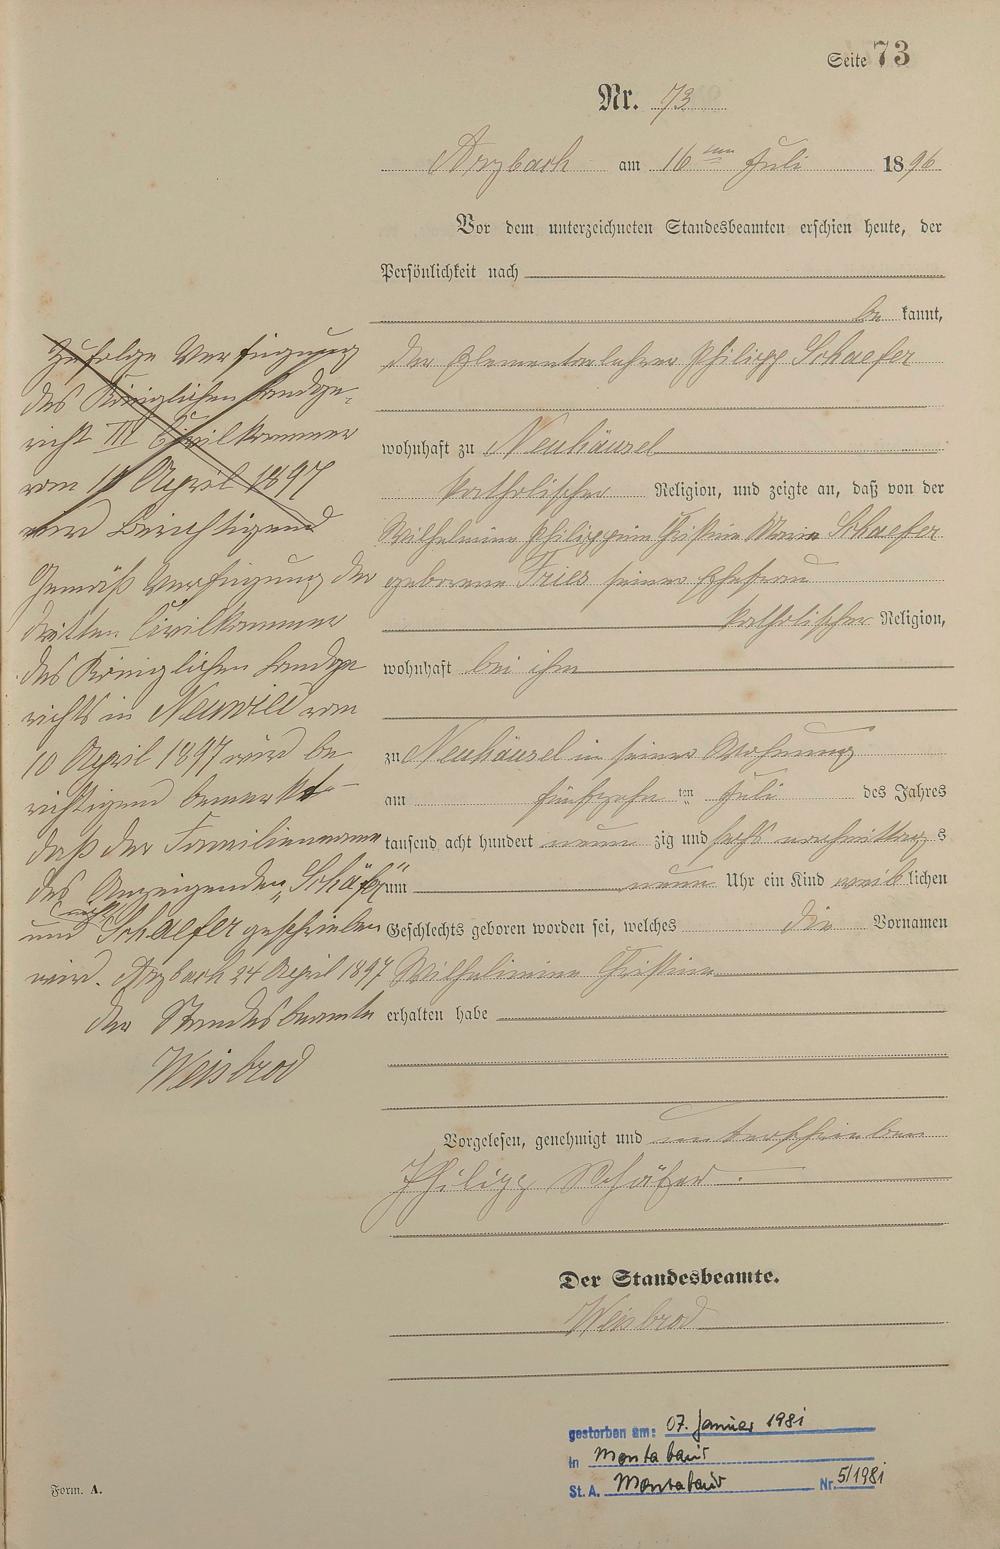 Seite 73
Nr. 73
Arzbach am 16ten Juli 1896
Vor dem unterzeichneten Standesbeamten erschien heute, der
Persönlichkeit nach
be kannt,
der Elementarlehrer Philipp Schaefer
wohnhaft zu Neuhäusel
katholischer Religion, und zeigte an, daß von der
Wilhelmine Philippine Christine Maria Schaefer
geborene Fries seiner Ehefrau
katholischer Religion,
wohnhaft bei ihm
zu Neuhäusel in seiner Wohnung
am fünfzehn ten Juli des Jahres
tausend acht hundert neun zig und sechs nachmittags
um neun Uhr ein Kind weiblichen
Geschlechts geboren worden sei, welches die Vornamen
Wilhelmine Christine
erhalten habe
Vorgelesen, genehmigt und unterschrieben
Philipp Schäfer.
Der Standesbeamte.
Weisbrod
Zufolge Verfügung
des Königlichen Landge-
richt III Civilkammer
vom 10 April 1897
wird berichtigend
Gemäß Verfügung der
dritten Civilkammer
des Königlichen Landge
richts in Neuwied vom
10 April 1897 wird be
richtigend bemerkt
daß der Familienname
des Anzeigenden „Schäfer"
und nicht Schaefer geschrieben
wird. Arzbach 24 April 1897
Der Standesbeamte
Weisbrod
gestorben am: 07. Januar 1981
in Montabaur
St. A. Montabaur Nr. 5/1981
Form. A.